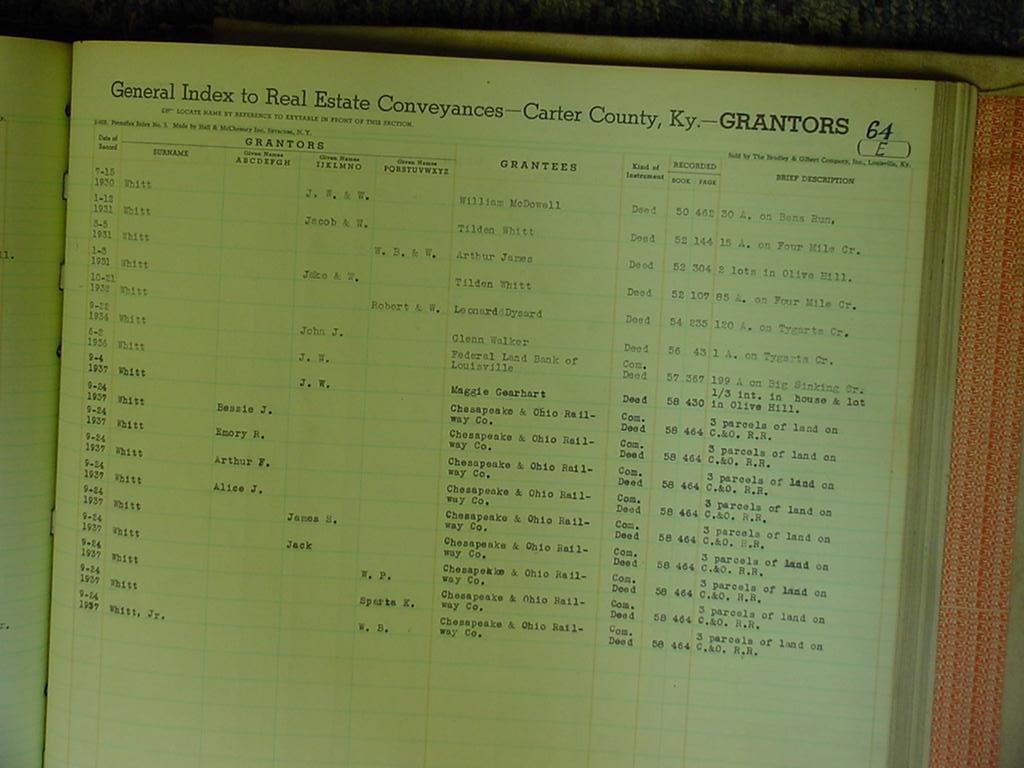 General Index to Real Estate Conveyances—Carter County, Ky.—GRANTORS 64
E
LOCATE NAME BY REFERENCE TO KEYTABLE IN FRONT OF THIS SECTION.
Made by Hall & McChesney Inc. Syracuse, N. Y. Sold by The Bradley & Gilbert Company, Inc., Louisville, Ky.
Date of Record GRANTORS GRANTEES Kind of Instrument RECORDED BRIEF DESCRIPTION
SURNAME Given Names ABCDEFGH Given Names IJKLMNO Given Names PQRSTUVWXYZ BOOK PAGE
7-15
1930 Whitt J. W. & W. William McDowell Deed 50 462 30 A. on Bens Run.
1-12
1931 Whitt Jacob & W. Tilden Whitt Deed 52 144 15 A. on Four Mile Cr.
3-5
1931 Whitt W. B. & W. Arthur James Deed 52 304 2 lots in Olive Hill.
1-3
1931 Whitt Jake & W. Tilden Whitt Deed 52 107 85 A. on Four Mile Cr.
10-21
1932 Whitt Robert & W. Leonard Dysard Deed 54 235 120 A. on Tygarts Cr.
9-22
1934 Whitt John J. Glenn Walker Deed 56 43 1 A. on Tygarts Cr.
6-2
1936 Whitt J. W. Federal Land Bank of Com.
Louisville Deed 57 367 199 A on Big Sinking Cr.
9-4
1937 Whitt J. W. Maggie Gearhart Deed 58 430 1/3 int. in house & lot
in Olive Hill.
9-24
1937 Whitt Bessie J. Chesapeake & Ohio Rail- Com. 3 parcels of land on
way Co. Deed 58 464 C.&O. R.R.
9-24
1937 Whitt Emory R. Chesapeake & Ohio Rail- Com. 3 parcels of land on
way Co. Deed 58 464 C.&O. R.R.
9-24
1937 Whitt Arthur F. Chesapeake & Ohio Rail- Com. 3 parcels of land on
way Co. Deed 58 464 C.&O. R.R.
9-24
1937 Whitt Alice J. Chesapeake & Ohio Rail- Com. 3 parcels of land on
way Co. Deed 58 464 C.&O. R.R.
9-24
1937 Whitt James S. Chesapeake & Ohio Rail- Com. 3 parcels of land on
way Co. Deed 58 464 C.&O. R.R.
9-24
1937 Whitt Jack Chesapeake & Ohio Rail- Com. 3 parcels of land on
way Co. Deed 58 464 C.&O. R.R.
9-24
1937 Whitt W. P. Chesapeake & Ohio Rail- Com. 3 parcels of land on
way Co. Deed 58 464 C.&O. R.R.
9-24
1937 Whitt Sparta K. Chesapeake & Ohio Rail- Com. 3 parcels of land on
way Co. Deed 58 464 C.&O. R.R.
9-24
1937 Whitt, Jr. W. B. Chesapeake & Ohio Rail- Com. 3 parcels of land on
way Co. Deed 58 464 C.&O. R.R.